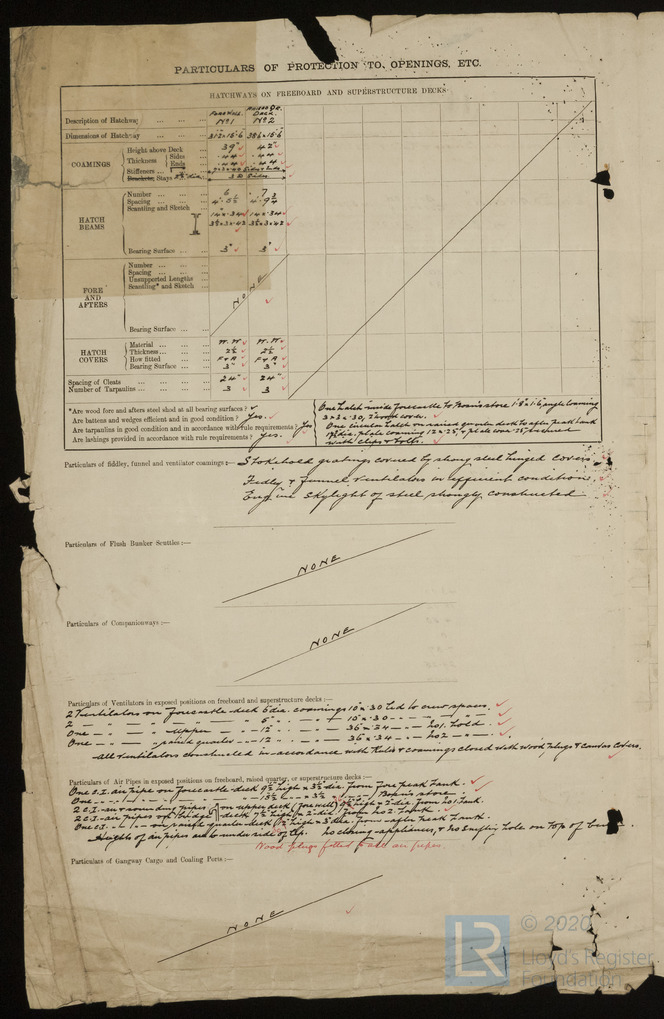 PARTICULARS OF PROTECTION TO OPENINGS, ETC.
HATCHWAYS ON FREEBOARD AND SUPERSTRUCTURE DECKS
Description of Hatchway ... Nº1 Nº2
Dimensions of Hatchway
COAMINGS
Height above Deck 39" 42"
Thickness Sides .44 .44
Ends .44 .44
Stiffeners
Brackets, Stays
HATCH BEAMS
Number ... 6 7
Spacing ...
Scantling and Sketch
Bearing Surface ... 3" 3"
FORE AND AFTERS
Number ...
Spacing ...
Unsupported Lengths
Scantling* and Sketch
NONE
Bearing Surface ...
HATCH COVERS
Material ... W.W W.W
Thickness ... 2½ 2½
How fitted F&A F&A
Bearing Surface 3" 3"
Spacing of Cleats 24" 24"
Number of Tarpaulins 3 3
*Are wood fore and afters steel shod at all bearing surfaces?
Are battens and wedges efficient and in good condition? Yes.
Are tarpaulins in good condition and in accordance with rule requirements? Yes
Are lashings provided in accordance with rule requirements? Yes.
One hatch inside forecastle to Bosn's store
with clips & bolts.
Particulars of fiddley, funnel and ventilator coamings:— Stokehold gratings covered by strong steel hinged covers
Fidley & funnel ventilators in efficient condition
Engine Skylight of steel strongly constructed
Particulars of Flush Bunker Scuttles:—
NONE
Particulars of Companionways:—
NONE
Particulars of Ventilators in exposed positions on freeboard and superstructure decks:—
2 Ventilators on forecastle deck 6" dia. coamings 10" x .30 led to crew spaces.
2 — — — — 6" — — 10" x .30
One — — upper — 12" — — 36" x .34 — — No1. hold.
One — — raised quarter — 12 — — 36" x .34 — — No2 —
All ventilators constructed in accordance with Rules & coamings closed with wood plugs & canvas covers.
Particulars of Air Pipes in exposed positions on freeboard, raised quarter, or superstructure decks:—
One C.I. air pipe on forecastle deck 9½ high x 3½ dia. from Fore peak tank.
Bosn's store
2 C.I. air & sounding pipes on upper deck (Fore well) 9½ high x 2" dia. from No1 Tank.
2 C.I. air pipes off bridge deck 7½ high x 2" dia. from No2 Tank.
One C.I. — — on raised quarter deck
Heights of air pipes are to underside of lip. No closing appliances, & no snifting hole on top of
Wood plugs fitted to all air pipes.
Particulars of Gangway Cargo and Coaling Ports:—
NONE
LR
© 2020
Lloyd's Register
Foundation